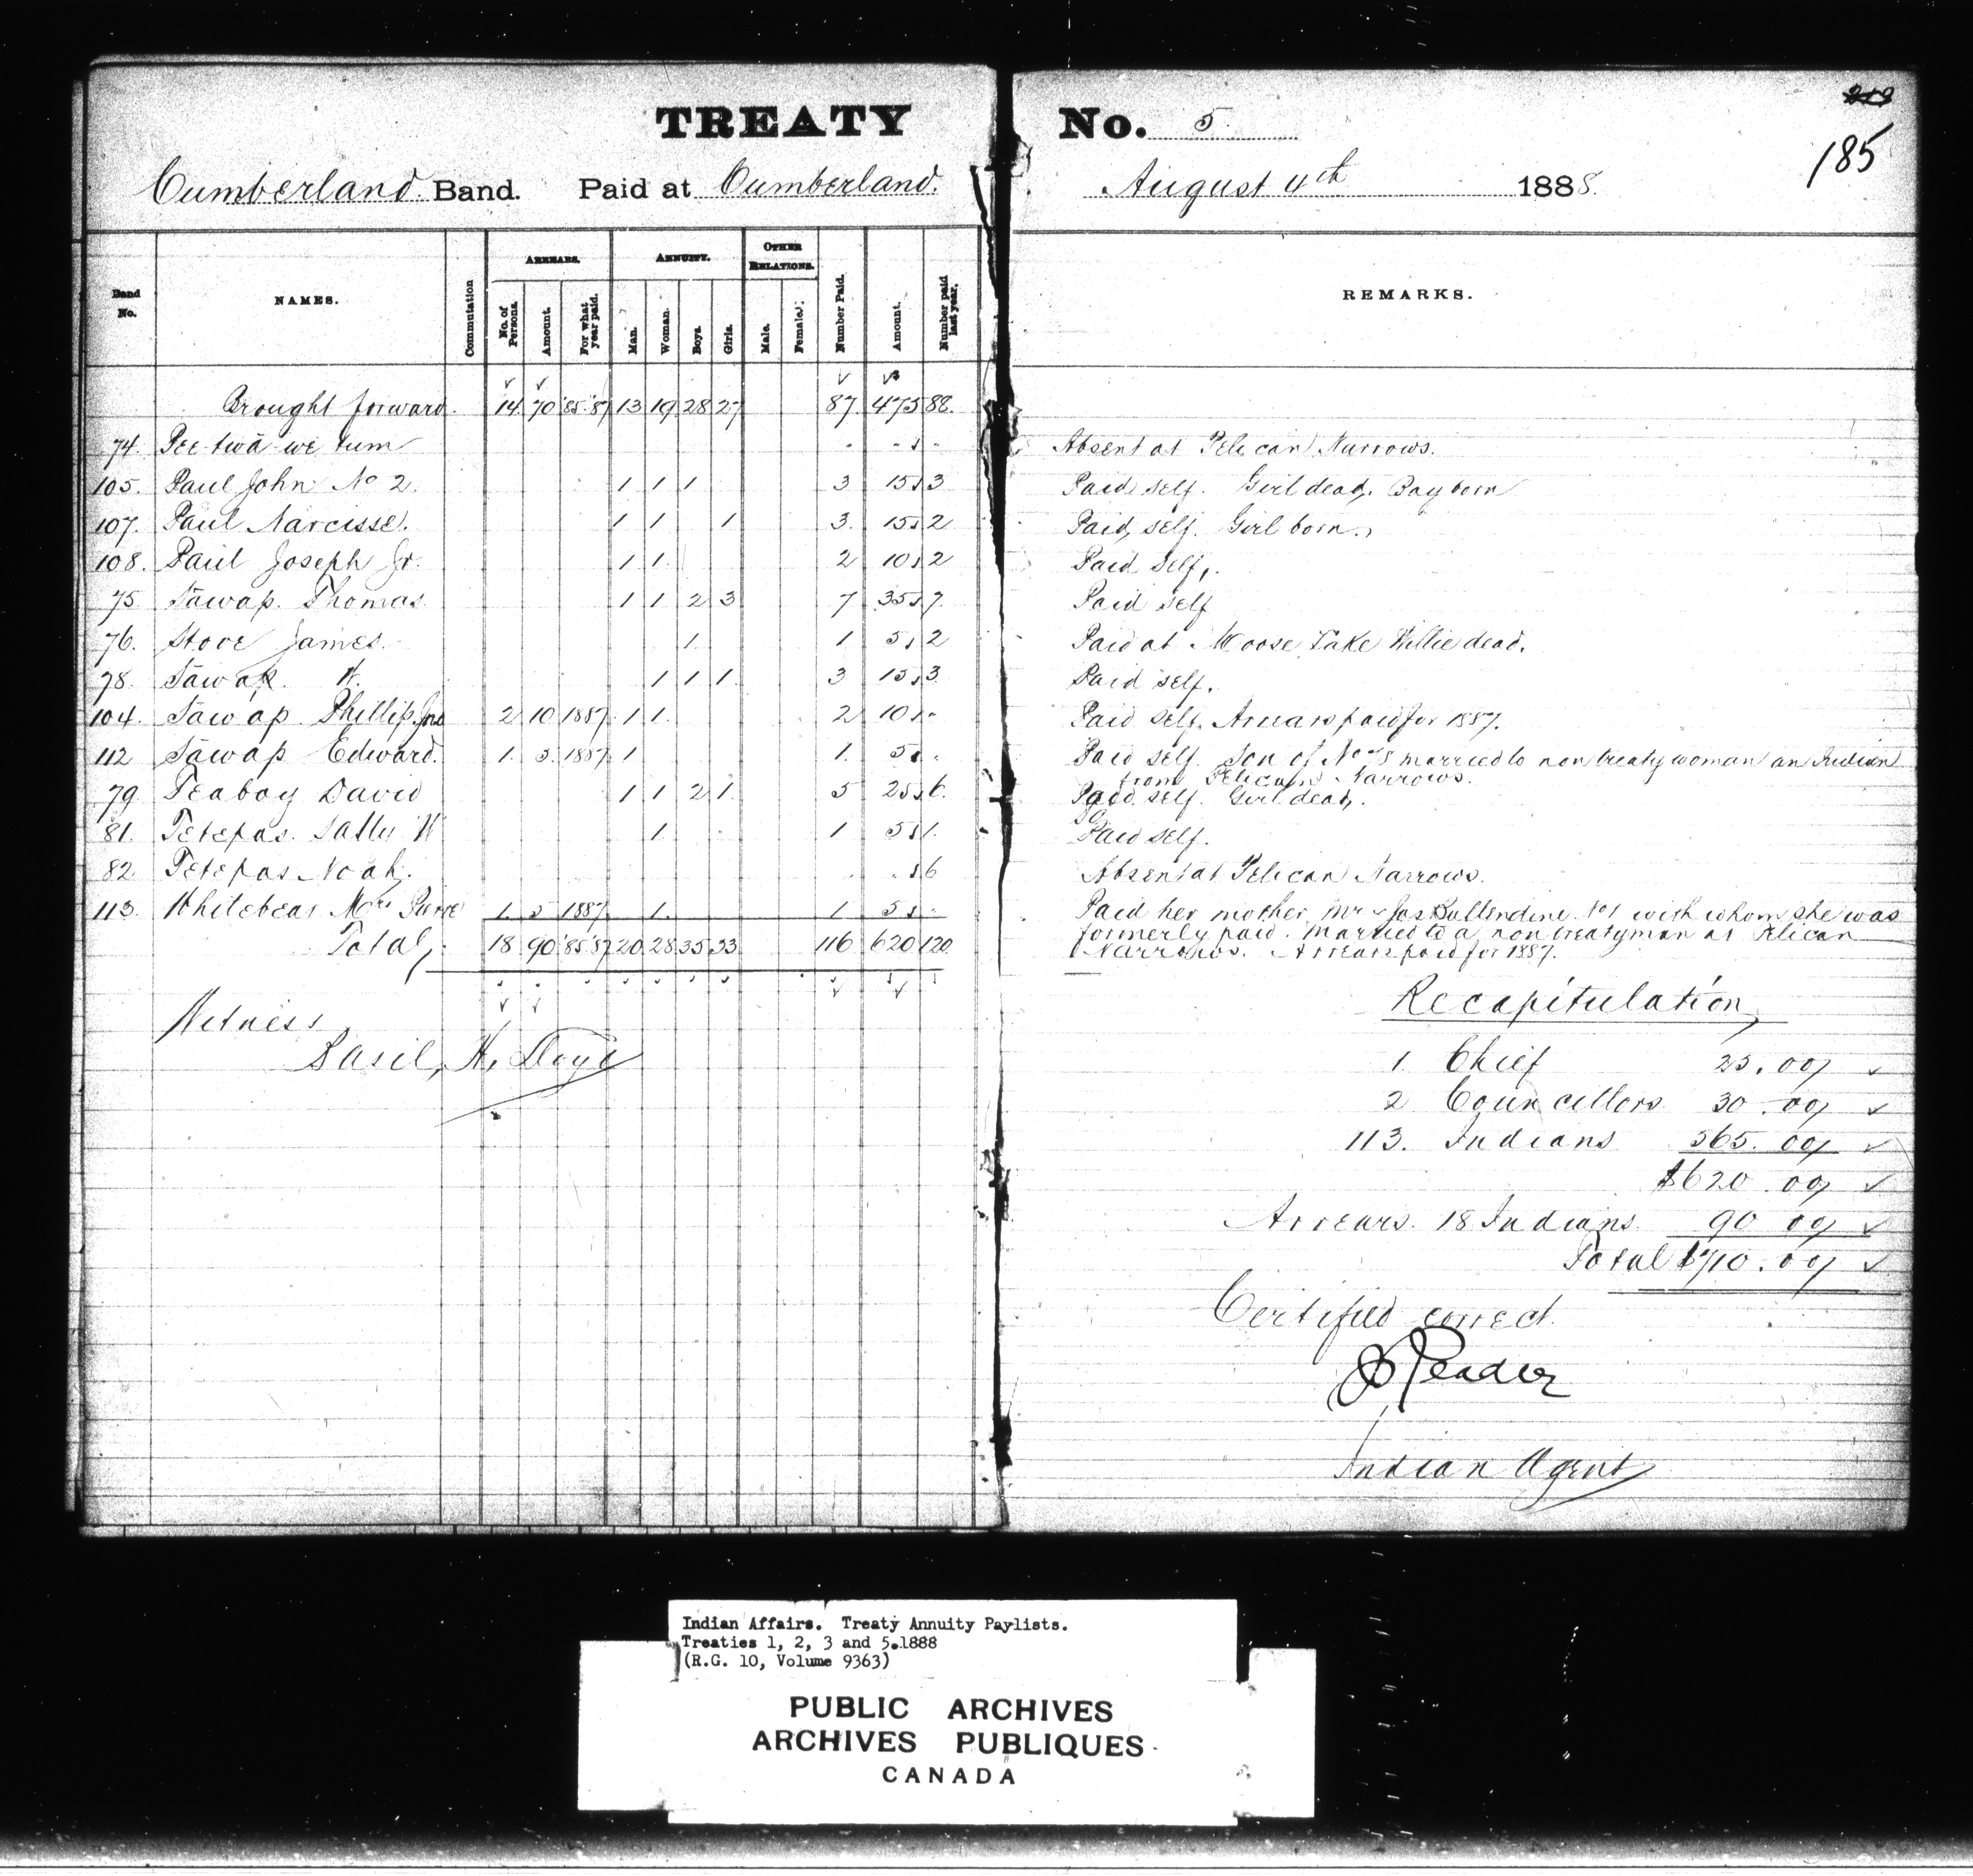 TREATY No. 5
185
Cumberland Band. Paid at Cumberland. August 4th 1888.
Band No. NAMES. Commutation ARREARS. No. of Persons. Amount. For what year paid. ANNUITY. Man. Woman. Boys. Girls. OTHER RELATIONS. Male. Female. Number Paid. Amount. Number paid last year. REMARKS.
Brought forward. 14 70 '85 '87 13 19 28 27 87 475 88.
74. Pee-twā-we tum Absent at Pelican Narrows.
105. Paul John No 2. 1 1 1 3 15 3 Paid self. Girl dead. Boy born
107. Paul Narcisse. 1 1 1 3. 15 2 Paid self. Girl born.
108. Paul Joseph Jr. 1 1. 2 10 2 Paid Self.
75 Sāwap. Thomas 1 1 2 3 7 35 7. Paid self
76. Stove James. 1. 1 5 2 Paid at Moose Lake Willie dead.
78. Sāwap. W. 1 1 1. 3 15 3. Paid self.
104. Sāwap Phillip Jnr 2 10 1887 1 1. 2 10 Paid self. Arrears paid for 1887.
112 Sāwap Edward. 1. 5. 1887 1 1. 5 Paid self. Son of No 75 married to non treaty woman an Indian
from Pelican Narrows.
79 Teaboy David 1 1 2 1. 5 25 6. Paid self. Girl dead.
81. Tetepas. Sally W 1. 1 5 1. Paid self.
82. Tetepas Noah. 6 Absent at Pelican Narrows.
113. Whitebear Mrs Pierre 1. 5 1887 1. 1 5 Paid her mother, Mrs Jas Ballendine No 1 with whom she was
formerly paid. Married to a non treatyman at Pelican
Narrows. Arrears paid for 1887.
Total, 18 90 '85 '87 20 28 35 33 116 620 120.
Witness
Basil, H, Lloyd
Recapitulation
1. Chief 25.00
2 Councillors 30.00
113. Indians 565.00
$620.00
Arrears. 18 Indians 90 00
Total $710.00
Certified correct.
J Reader
Indian Agent
Indian Affairs. Treaty Annuity Paylists.
Treaties 1, 2, 3 and 5.1888
(R.G. 10, Volume 9363)
PUBLIC ARCHIVES
ARCHIVES PUBLIQUES
CANADA